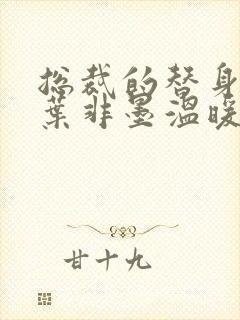 总裁的替身
葉非墨溫暖
甘十九